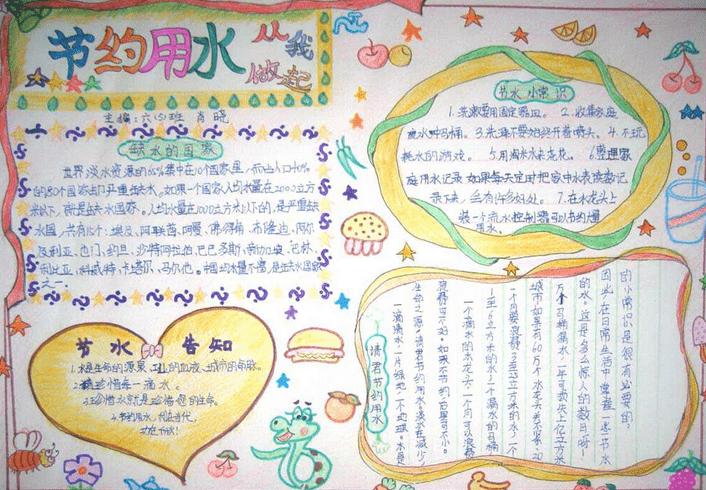 节约用水
从我
做起
主编:六(4)班 肖晓
缺水的国家
世界淡水资源的65%集中在10个国家里,而占人口40%
的80个国家却严重缺水,如果一个国家人均水量在2000立方
米以下,就是缺水国家。人均水量在1000立方米以下的,是严重缺
水国。共有15个:埃及、阿联酋、阿曼、佛得角、布隆迪、阿尔
及利亚、也门、约旦、沙特阿拉伯、巴巴多斯、新加坡、巴林、
利比亚、科威特、卡塔尔、马尔他。中国均水量不高,是缺水国家
之一。
节水小常识
1.洗漱要用固定器皿。 2.收集家庭
废水冲马桶。 3.洗澡不要始终开着喷头。 4.不玩
耗水的游戏。 5.用淘米水来浇花。 6.整理家
庭用水记录 如果每天定时把家中水表读数记
录下来,会有许多好处。 7.在水龙头上
装一个流水控制器可以节约大量
用水。
节水的告知
1.水是生命的源泉、工业的血液、城市的命脉。
2.请珍惜每一滴水。
3.珍惜水就是珍惜您的生命。
4.节约用水,利在当代,
功在千秋!
请君节约用水
一滴滴水,一片绿地,一个地球。水是
生命之源!请君节约用水!淡水在减少,
浪费可不好,如果不节约,后果可不小。
一个滴水的水龙头,一个月可以浪费
1至6立方米的水!一个漏水的马桶,
一个月要浪费3至25立方米的水,一个
城市如果有60万个水龙头关不紧、20
万个马桶漏水,一年可损失上亿立方米
的水。这是多么惊人的数目呀!
因此,在日常生活中,掌握一些节水
的小常识是很有必要的。